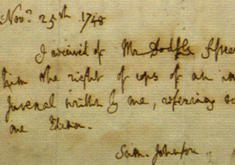 Nov.r 25th 1748
I received of Mr Dodsley fifteen
him the right of copy of an im
Juvenal written by me, reserving to
me Edition.
Sam. Johnson.